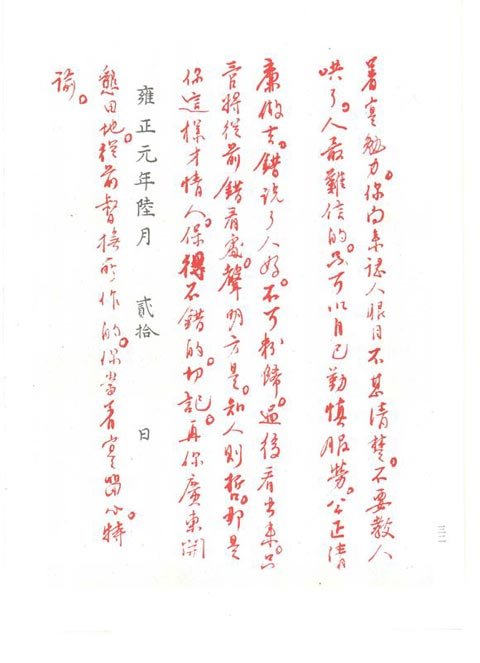 着寔勉力。你向來認人眼目不甚清楚。不要教人
哄了。人最難信的。只可以自己勤慎服勞。公正清
廉做去。錯說了人好。不可粉餙。過後看出來。只
管将從前錯看處。聲明方是。知人則哲。那是
你這樣才情人。保得不錯的。切記。再你廣東開
雍正元年陸月 貳拾 日
懇田地。從前督撫所作的。你當着寔留心。特
諭。